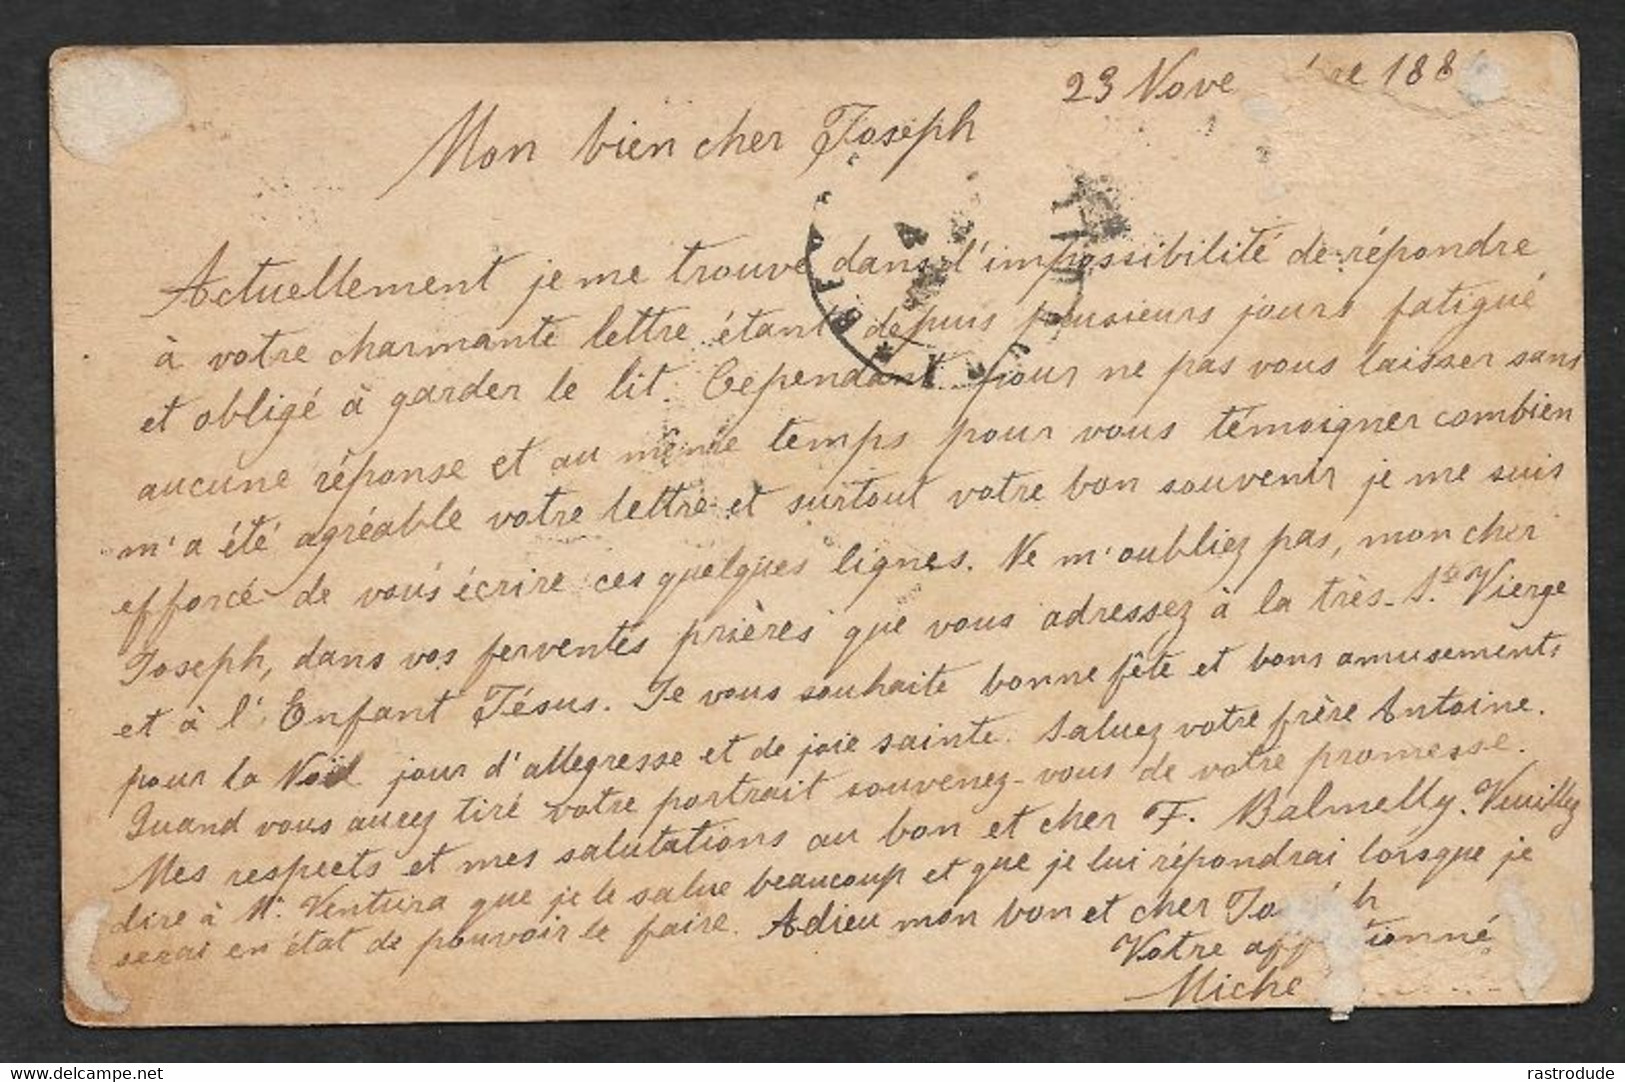 23 Nove re 188
Mon bien cher Joseph
Actuellement je me trouve dans l'impossibilité de répondre
à votre charmante lettre étant depuis plusieurs jours fatigué
et obligé à garder le lit. Cependant pour ne pas vous laisser sans
aucune réponse et au même temps pour vous témoigner combien
m'a été agréable votre lettre et surtout votre bon souvenir je me suis
efforcé de vous écrire ces quelques lignes. Ne m'oubliez pas, mon cher
Joseph, dans vos ferventes prières que vous adressez à la très-Ste Vierge
et à l'Enfant Jésus. Je vous souhaite bonne fête et bons amusements
pour la Noël jour d'allegresse et de joie sainte. Saluez votre frère Antoine.
Quand vous aurez tiré votre portrait souvenez-vous de votre promesse.
Mes respects et mes salutations au bon et cher F. Balmelly. Veuillez
dire à Mr Ventura que je le salue beaucoup et que je lui répondrai lorsque je
serai en état de pouvoir le faire. Adieu mon bon et cher Jo h
Votre aff tionné
Miche
rastrodude
delcampe.net